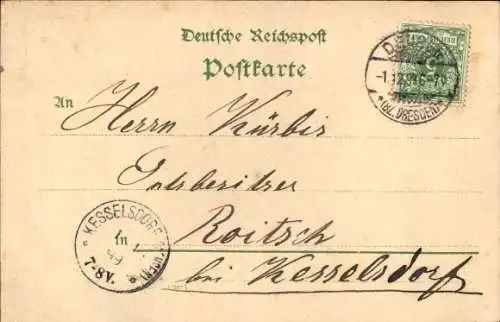 Deutsche Reichspost
Postkarte
An
Herrn Kürbis
Gutsbesitzer
in Roitsch
bei Kesselsdorf
(BZ. DRESDEN)
KESSELSDORF
7-8V.